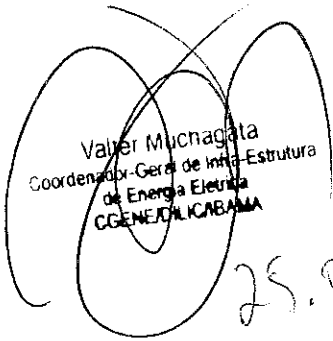 Valter Muchagata
Coordenador-Geral de Infra-Estrutura
de Energia Elétrica
CGENE/DILIC/IBAMA
25.